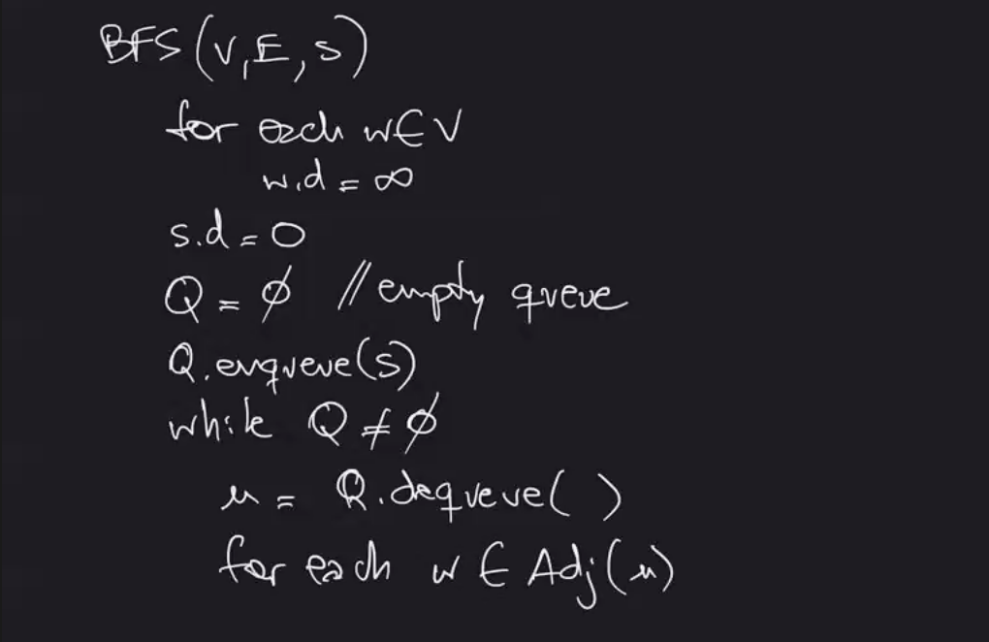 BFS(V,E,s)
for each w∈V
w.d = ∞
s.d = 0
Q = ∅ // empty queue
Q.enqueue(s)
while Q ≠ ∅
u = Q.dequeue( )
for each w ∈ Adj(u)